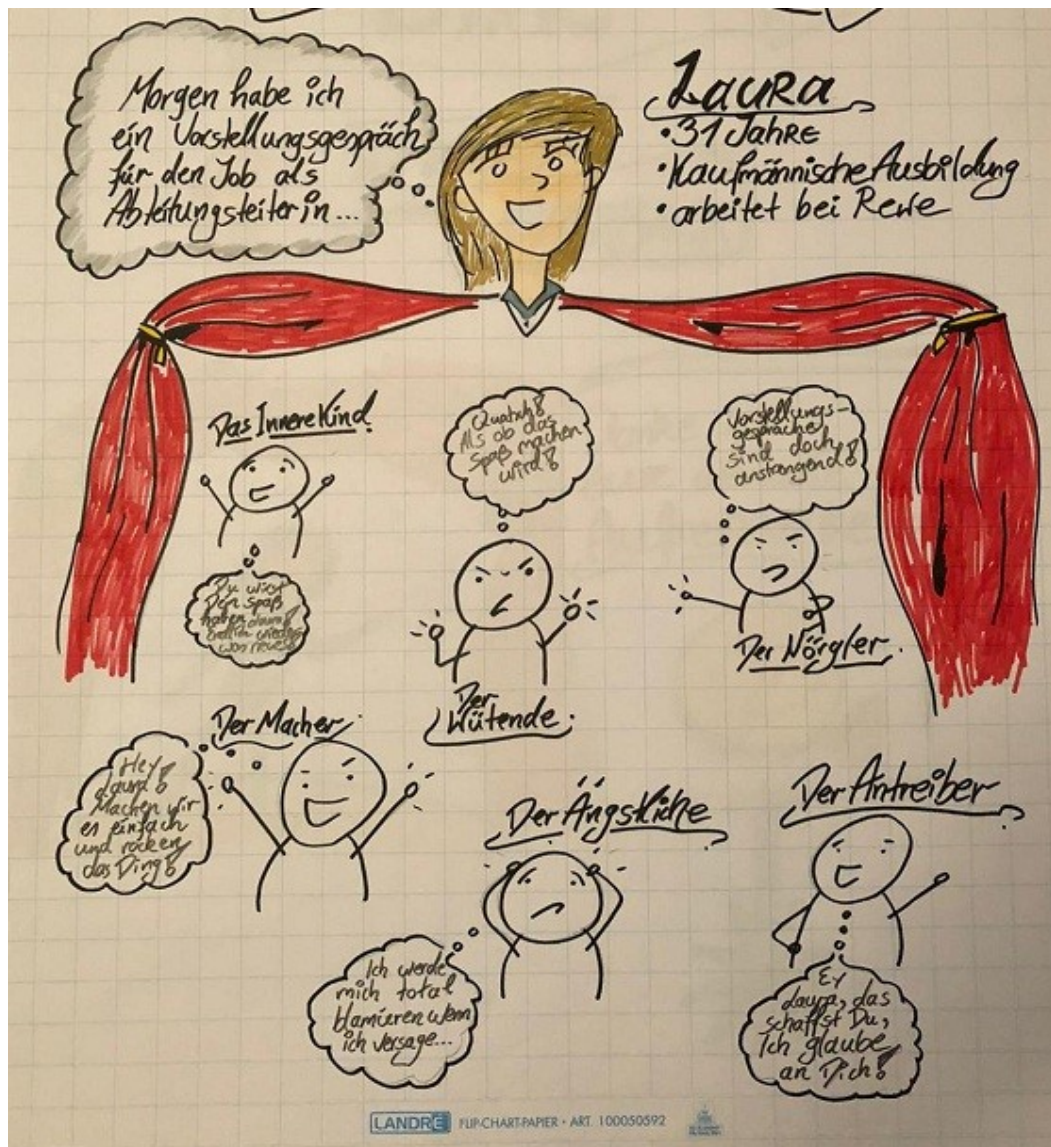 Morgen habe ich
ein Vorstellungsgespräch
für den Job als
Abteilungsleiterin...
Laura
• 31 Jahre
• Kaufmännische Ausbildung
• arbeitet bei Rewe
Das Innere Kind
Du wirst
Spaß
haben Laura!
endlich wieder
was neues!
Quatsch!
Als ob das
Spaß machen
wird!
Der
Wütende.
Vorstellungs-
gespräche
sind doch
anstrengend!
Der Nörgler.
Der Macher
Hey
Laura!
Machen wir
es einfach
und rocken
das Ding!
Der Ängstliche
Ich werde
mich total
blamieren wenn
ich versage...
Der Antreiber
Ey
Laura, das
schaffst Du,
Ich glaube
an Dich!
LANDRÉ FLIP-CHART-PAPIER • ART. 100050592